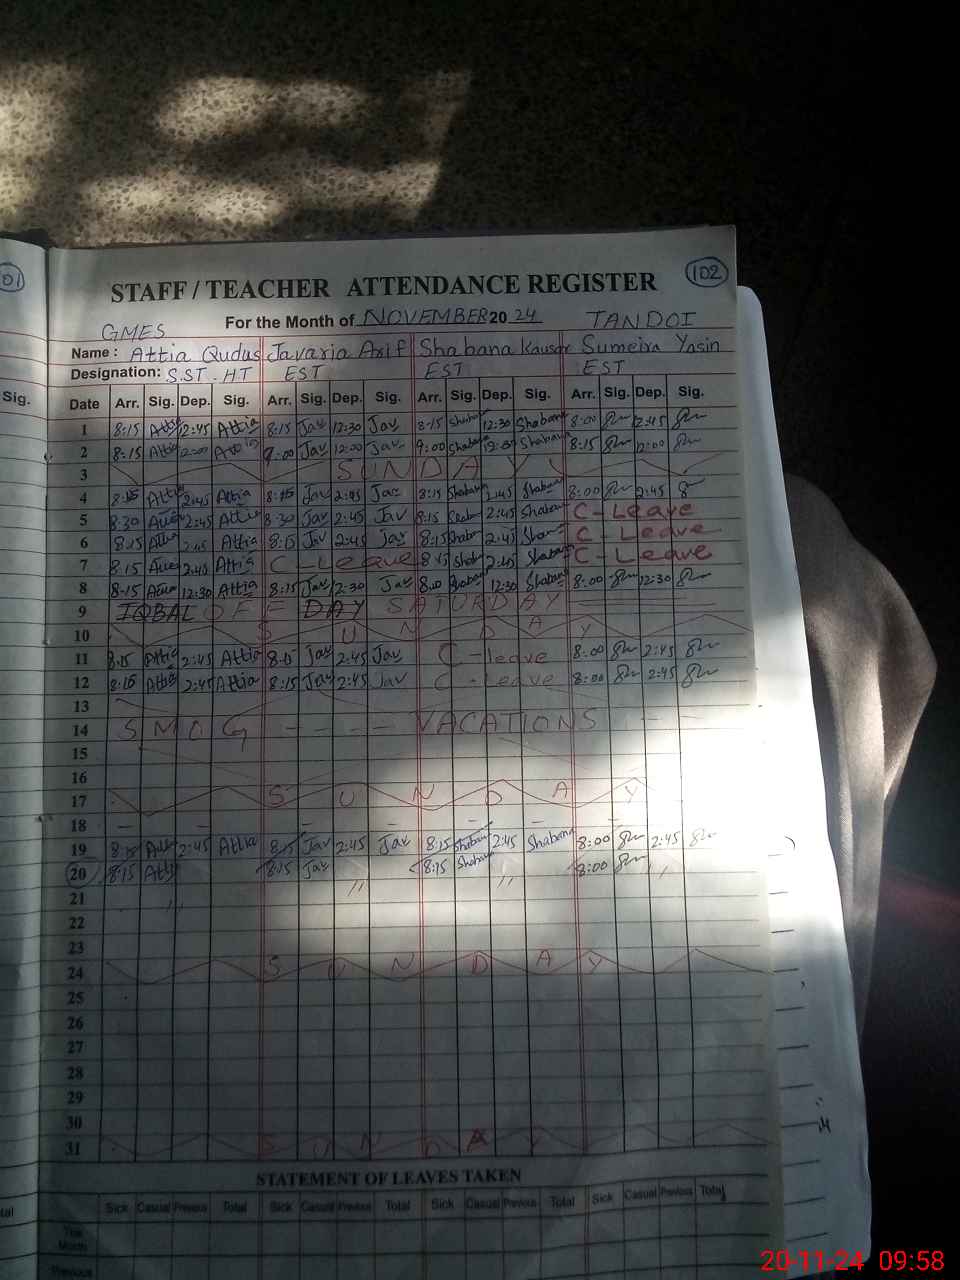 01
102
STAFF / TEACHER ATTENDANCE REGISTER
GMES For the Month of NOVEMBER 20 24 TANDOI
Name : Attia Qudus Javaria Asif Shabana Kausar Sumeira Yasin
Designation: S.ST. HT EST EST EST
Sig. Date Arr. Sig. Dep. Sig. Arr. Sig. Dep. Sig. Arr. Sig. Dep. Sig. Arr. Sig. Dep. Sig.
1 8:15 Attia 12:45 Attia 8:15 Jav 12:30 Jav 8:15 Shabana 12:30 Shabana 8:00 12:45
2 8:15 Attia 12:00 Attia 9:00 Jav 12:00 Jav 9:00 Shabana 12:00 Shabana 8:15 12:00
3 SUNDAY
4 8:15 Attia 2:45 Attia 8:15 Jav 2:45 Jav 8:15 Shabana 2:45 Shabana 8:00 2:45
5 8:30 Attia 2:45 Attia 8:30 Jav 2:45 Jav 8:15 2:45 Shabana C - Leave
6 8:15 Attia 2:45 Attia 8:15 Jav 2:45 Jav 8:15 Shaban 2:45 Shaban C - Leave
7 8:15 2:45 Attia C - Leave 8:45 Shaban 2:45 Shabana C - Leave
8 8:15 12:30 Attia 8:15 Jav 12:30 Jav Shabana 12:30 Shabana 8:00 12:30
9 IQBAL OFF DAY SATURDAY
10 SUNDAY
11 8:15 Attia 2:45 Attia 8:15 Jav 2:45 Jav C - leave 8:00 2:45
12 8:15 Attia 2:45 Attia 8:15 Jav 2:45 Jav C - Leave 8:00 2:45
13
14 SMOG - - - - VACATIONS - -
15
16
17 SUNDAY
18 - - - - - -
19 8:15 Attia 2:45 Attia 8:15 Jav 2:45 Jav 8:15 Shabana 2:45 Shabana 8:00 2:45
20 8:15 Attia 8:15 Jav 8:15 Shabana 8:00
21
22
23
24 SUNDAY
25
26
27
28
29
30
31 SUNDAY
STATEMENT OF LEAVES TAKEN
tal Sick Casual Previous Total Sick Casual Previous Total Sick Casual Previous Total Sick Casual Previous Total
Month
Previous
20-11-24 09:58